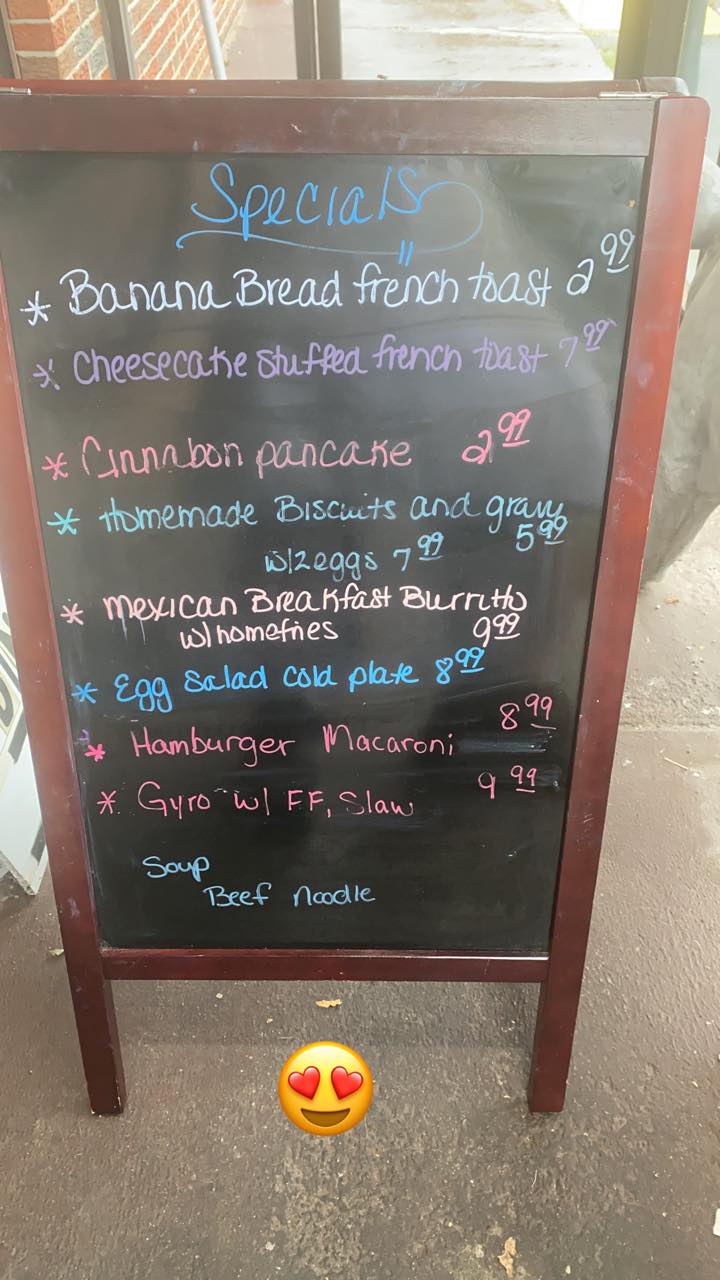 Specials
* Banana Bread french toast 2 99
* Cheesecake stuffed french toast 7 99
* Cinnabon pancake 2 99
* Homemade Biscuits and gravy
5 99
w/2eggs 7 99
* Mexican Breakfast Burritto
w/homefries 9 99
* Egg Salad Cold plate 8 99
* Hamburger Macaroni 8 99
* Gyro w/ FF, Slaw 9 99
Soup
Beef Noodle